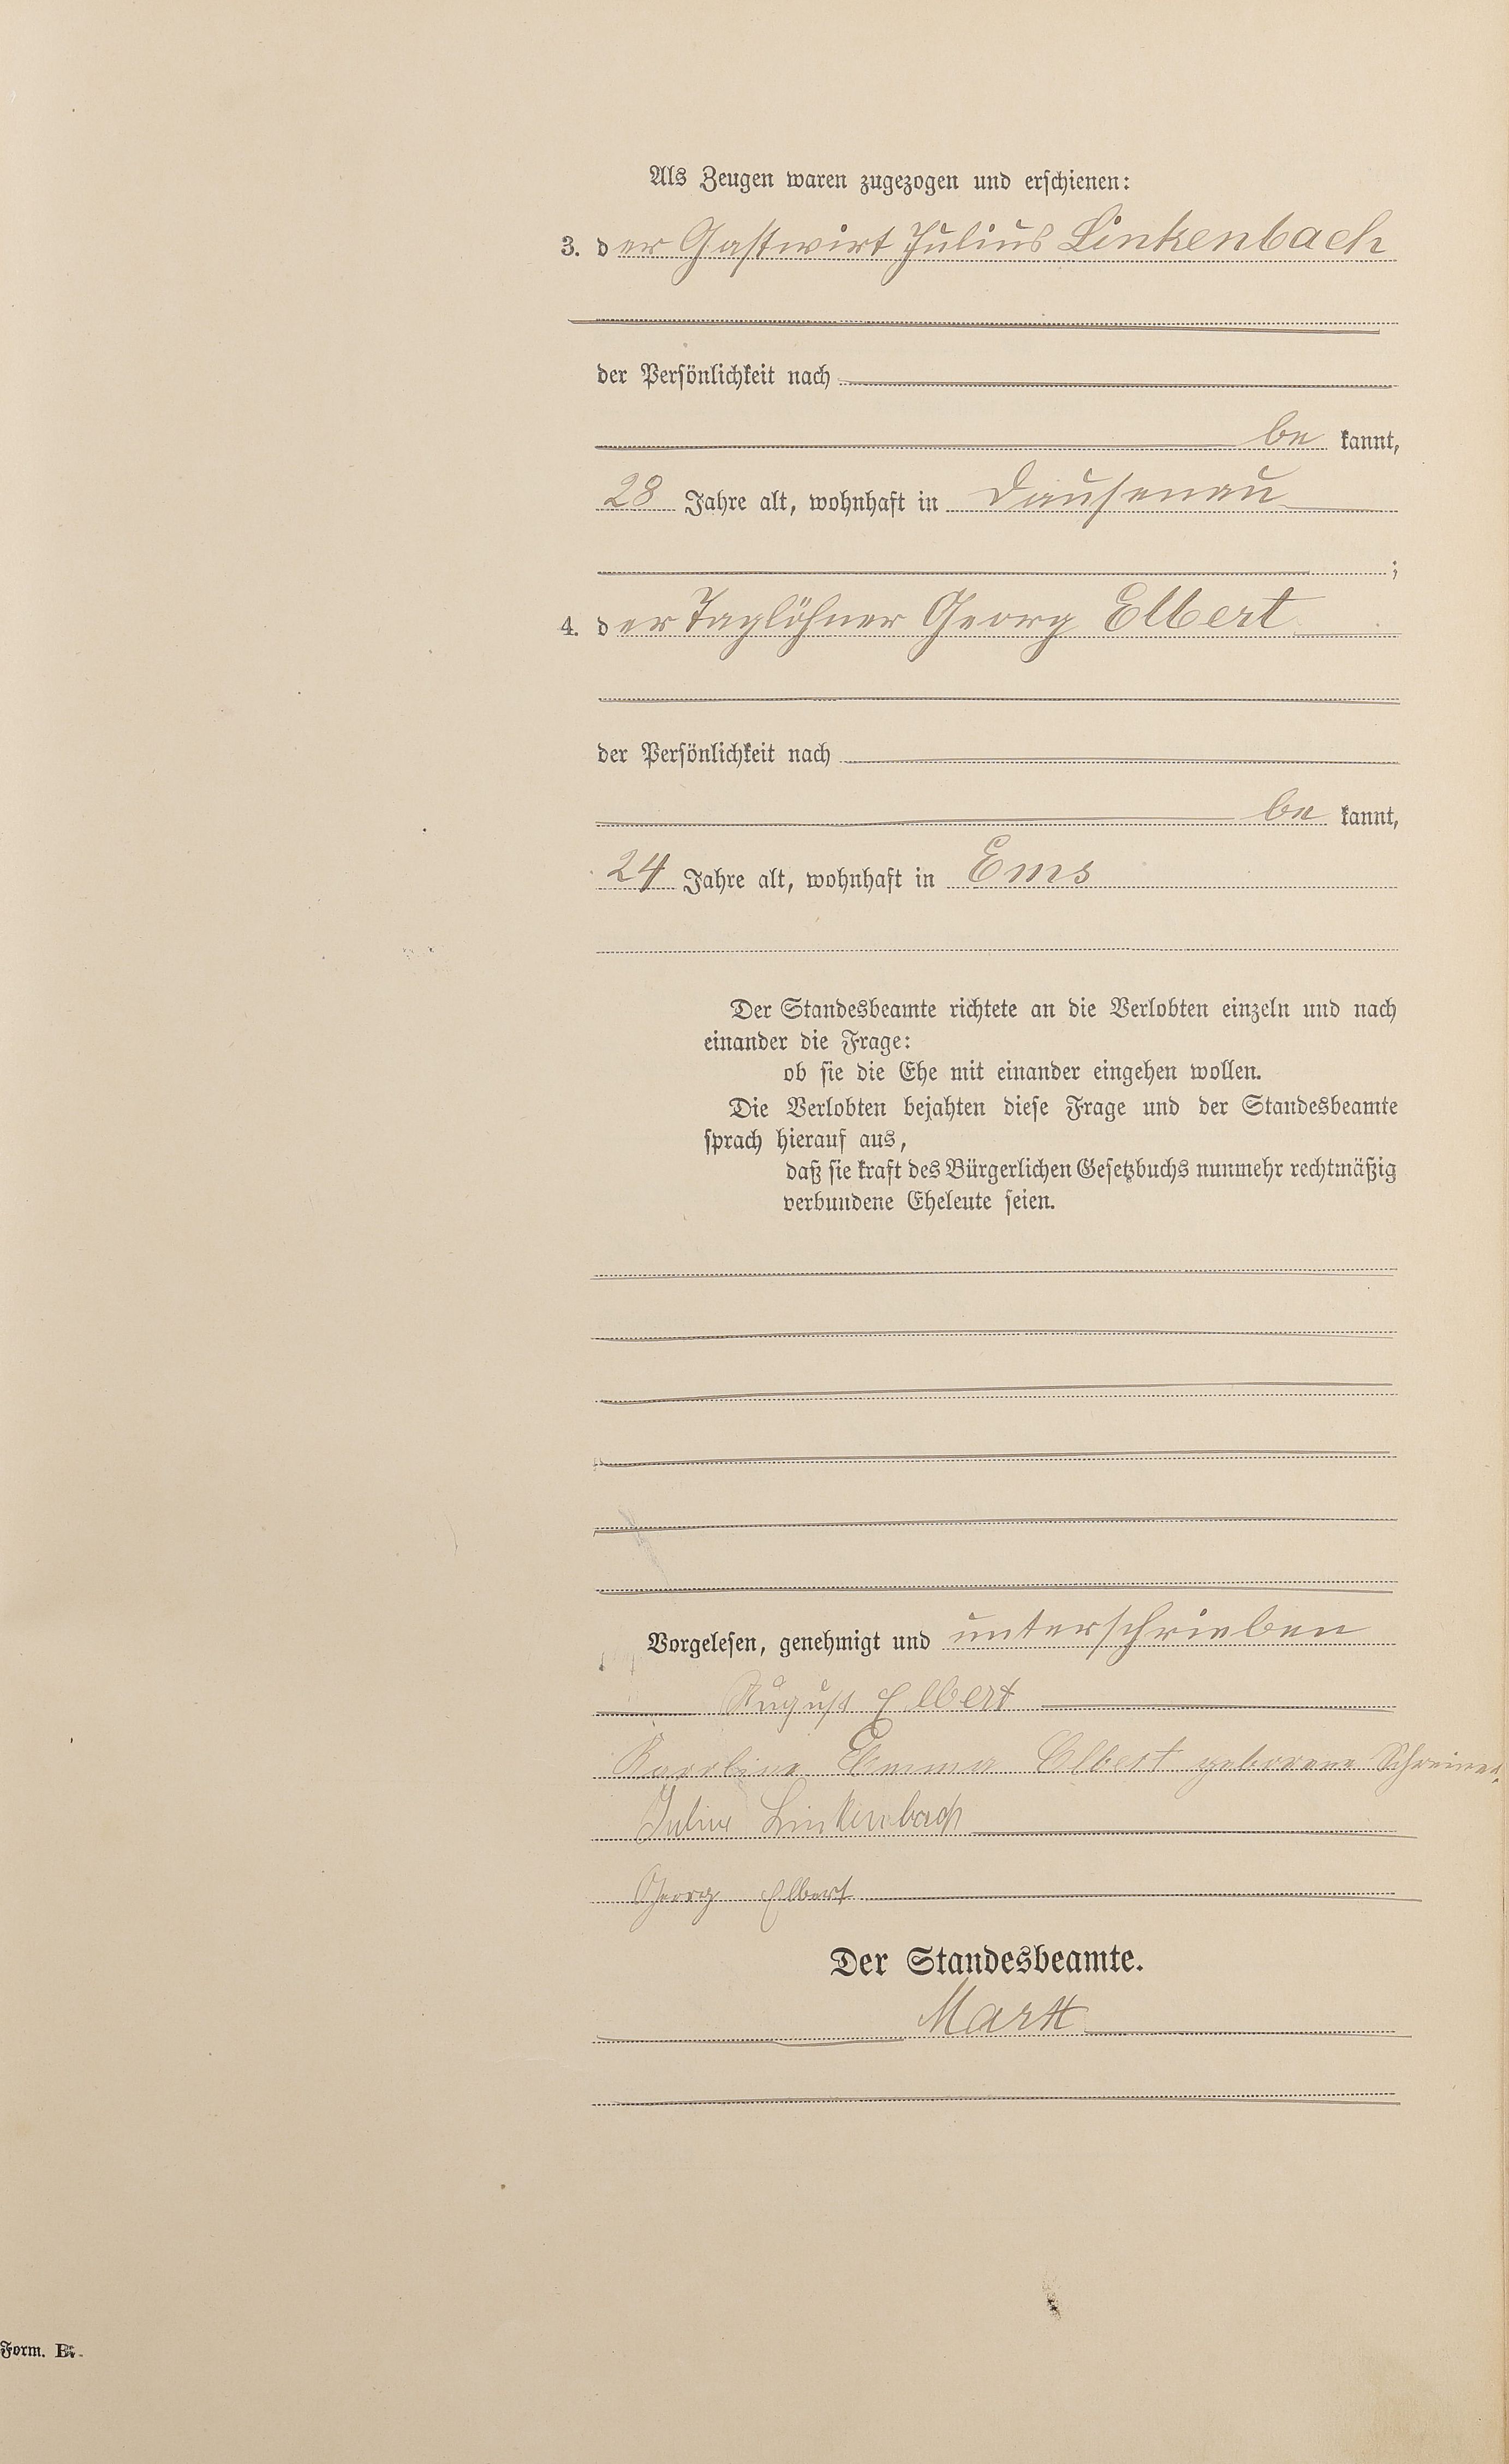 Als Zeugen waren zugezogen und erschienen:
3. der Gastwirt Julius Linkenbach
der Persönlichkeit nach
be kannt,
28 Jahre alt, wohnhaft in Dausenau
;
4. der Taglöhner Georg Elbert
der Persönlichkeit nach
be kannt,
24 Jahre alt, wohnhaft in Ems
Der Standesbeamte richtete an die Verlobten einzeln und nach
einander die Frage:
ob sie die Ehe mit einander eingehen wollen.
Die Verlobten bejahten diese Frage und der Standesbeamte
sprach hierauf aus,
daß sie kraft des Bürgerlichen Gesetzbuchs nunmehr rechtmäßig
verbundene Eheleute seien.
Vorgelesen, genehmigt und unterschrieben
August Elbert
Karoline Emma Elbert geborene
Julius Linkenbach
Georg Elbert
Der Standesbeamte.
Form. B.